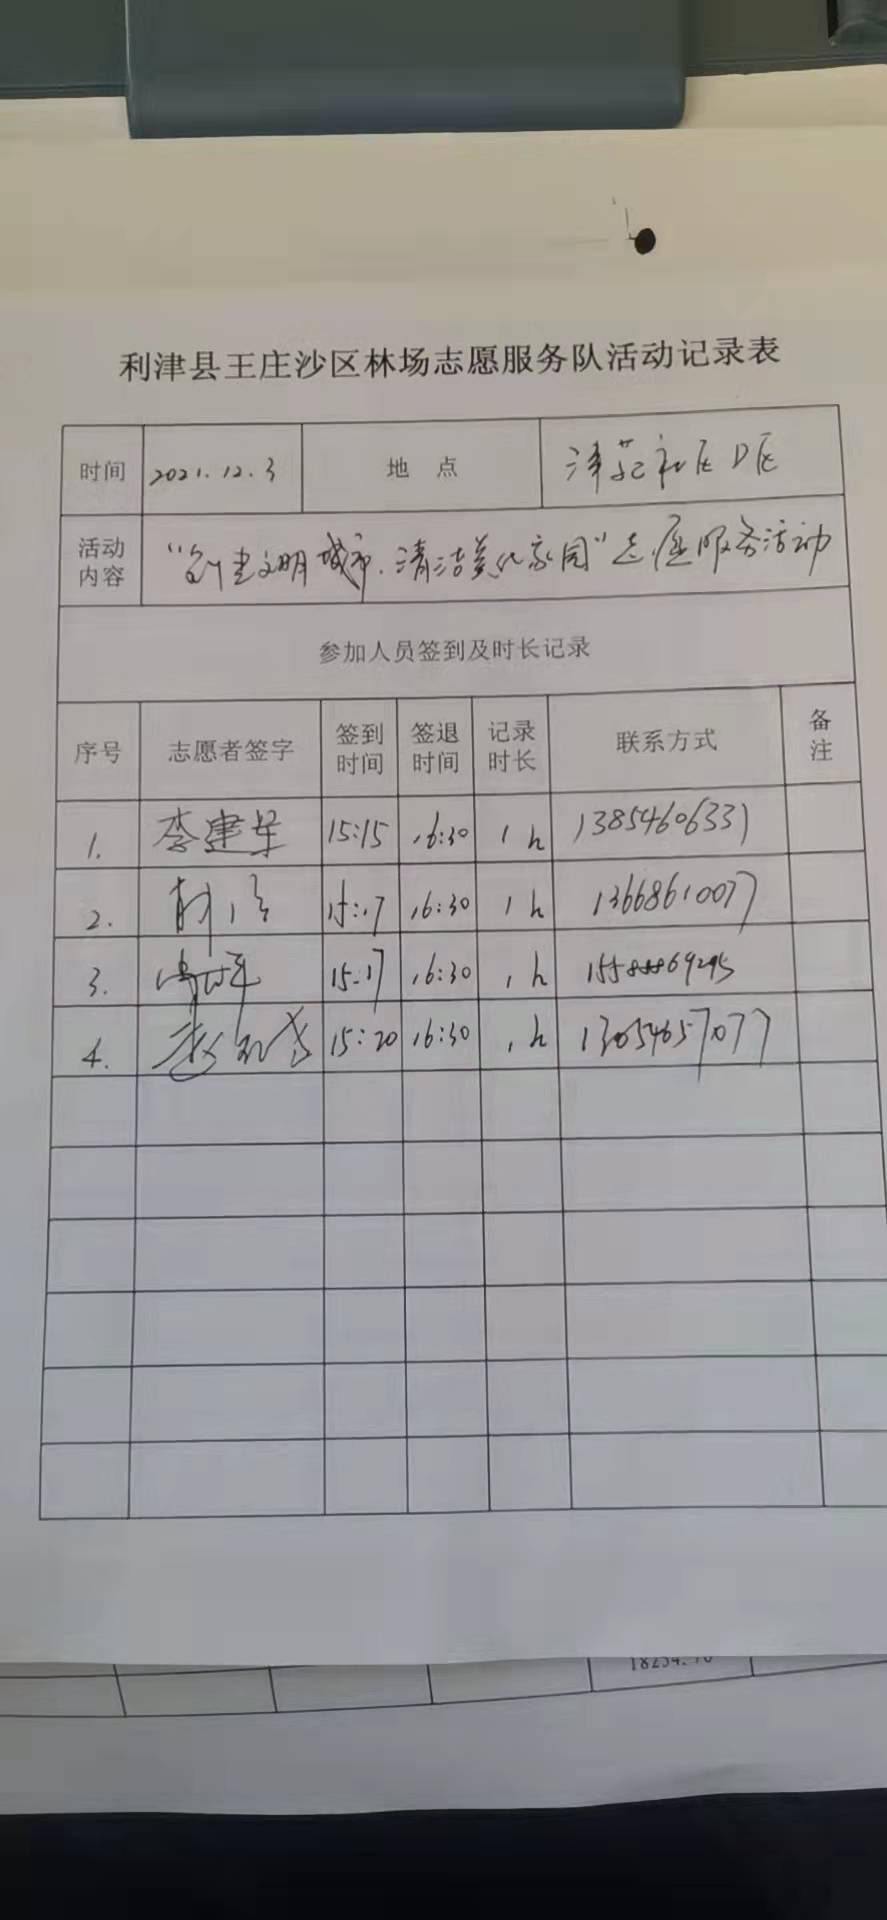 利津县王庄沙区林场志愿服务队活动记录表
时间 2021.12.3 地 点 津苑社区D区
活动内容 "创建文明城市、清洁美化家园"志愿服务活动
参加人员签到及时长记录
序号 志愿者签字 签到时间 签退时间 记录时长 联系方式 备注
1. 李建军 15:15 16:30 1h 13854606331
2. 15:17 16:30 1h 13668610077
3. 15:17 16:30 1h
4. 15:20 16:30 1h 13054657077